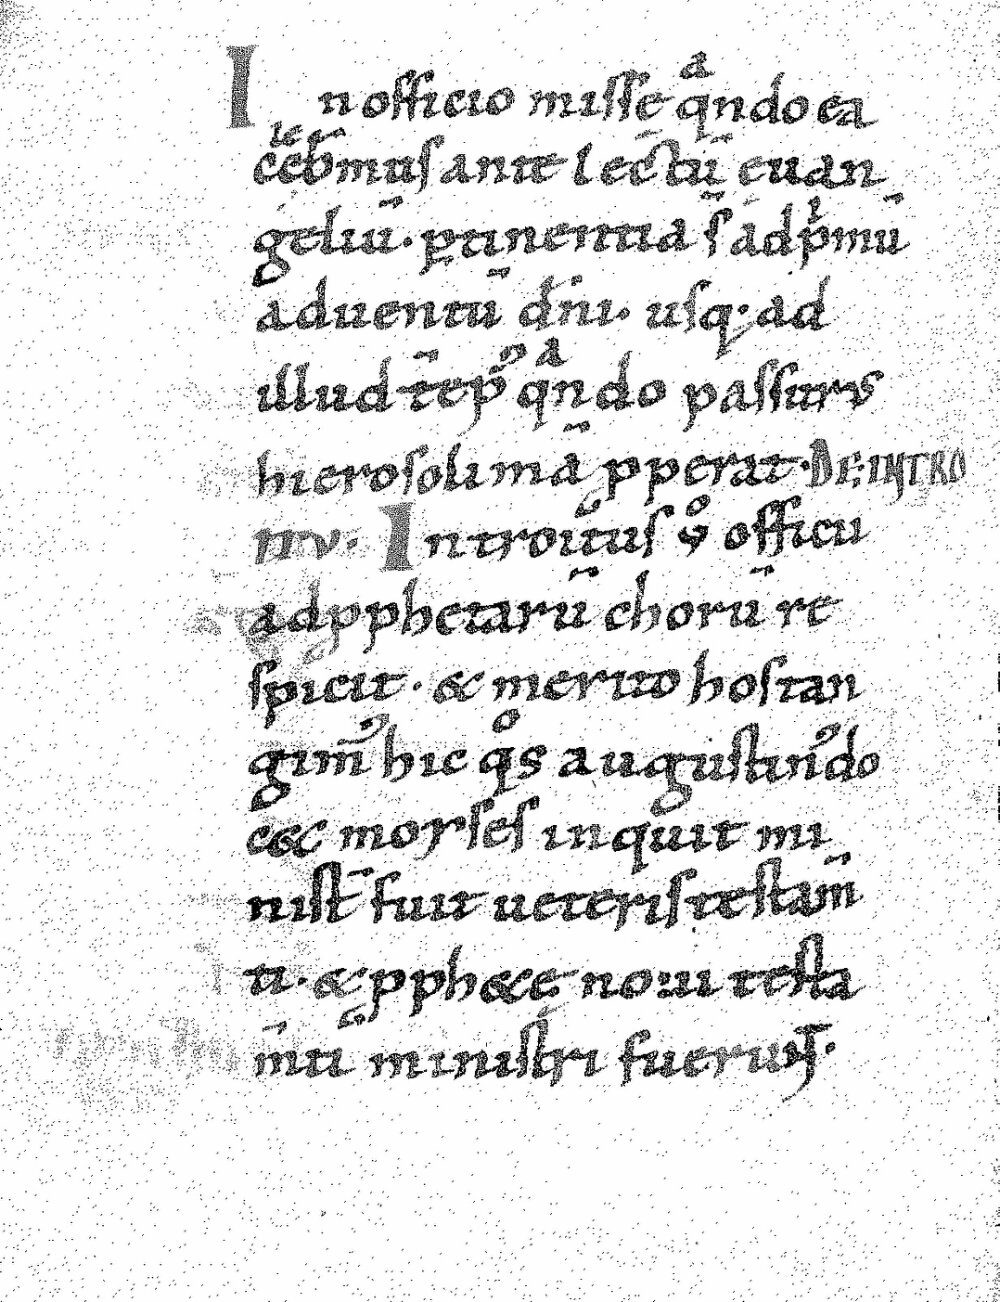 In officio misse qͣndo ea
celebͬmus ante lectū euan
geliū. ꝑtinentia sᷓ adpͥmū
aduentū dn̄i. usq; ad
illud tēpꝰ qͣndo passurus
hierosolimā ꝓperat. DE INTRO
ITU. Introitᷓus uͦ officii
ad ꝓphetarū chorū re
spicit. & merito hostan
gimꝰ hic qͦs augustinꝰ do
c& moyses inquit mi
nist̄ fuit ueteris testam̄
ti. & ꝓph&ę noui testa
m̄ti ministri fuerunt.